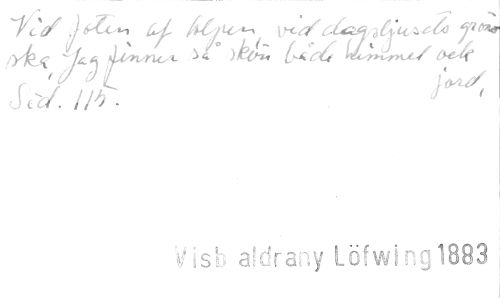 Vid foten af Alpen, vid dagsljusets grön-
ska, Jag finner så skön både himmel och
jord,
Sid. 115.
Visb aldrany Löfwing 1883